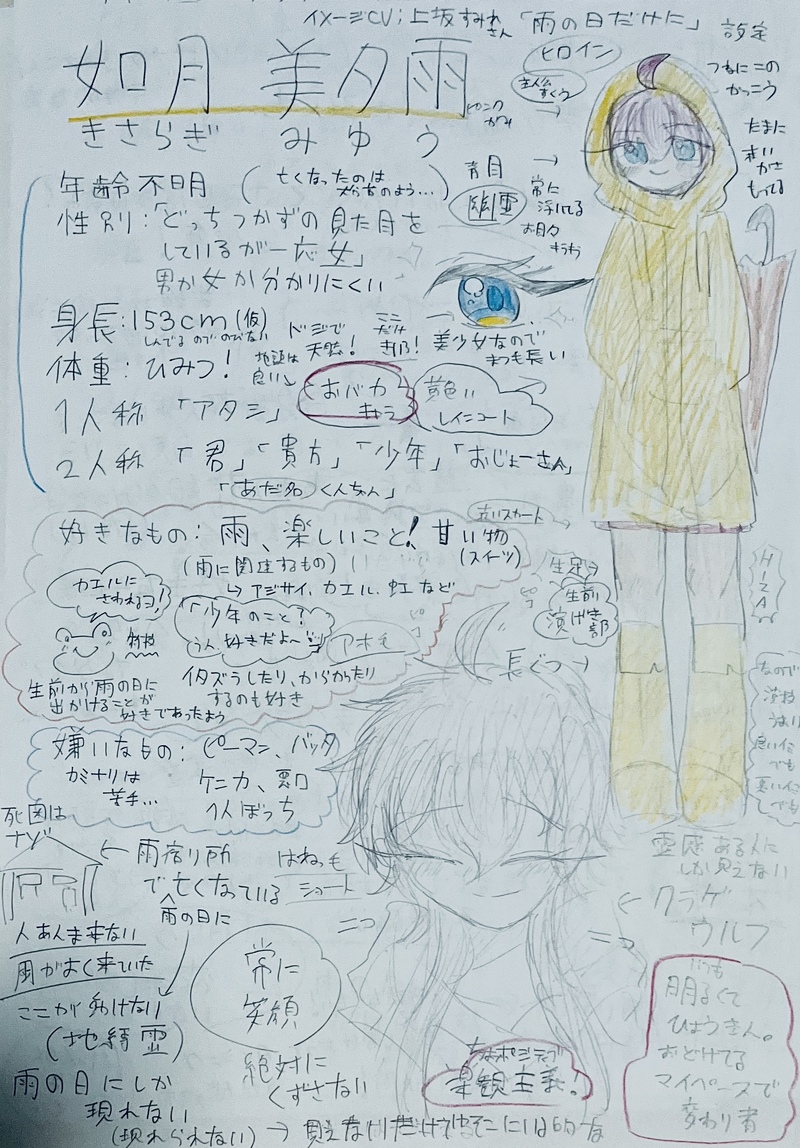 イメージCV:上坂すみれさん
「雨の日だけに」設定
如月 美夕雨
きさらぎ みゆう
ヒロイン
つねにこの
かっこう
たまに
赤い
かさ
もってる
青目
幽霊
常に
浮いてる
年齢不明
(亡くなったのは
性別:「どっちつかずの見た目を
しているが一応女」
男か女か分かりにくい
身長:153cm(仮)
体重:ひみつ!
ドジで
天然!
地頭は
良い
美少女なので
まつ毛長い
おバカ
キャラ
黄色い
レインコート
1人称「アタシ」
2人称「君」「貴方」「少年」「おじょーさん」
「(あだ名)くんちゃん」
好きなもの:雨、楽しいこと!甘い物
(スイーツ)
(雨に関連するもの)
↳アジサイ、カエル、虹など
カエルに
さわれるヨ!
特技
「少年のこと?
うん、好きだよ〜」
アホ毛
ピコ
ピコ
生前から雨の日に
出かけることが
好きであったよう
イタズラしたり、からかったり
するのも好き
赤いスカート→
生足
生前
演げき部
HIZA
長ぐつ→
なので
演技
嫌いなもの:ピーマン、バッタ
カミナリは
苦手…
ケンカ、悪口
1人ぼっち
死因は
ナゾ
←雨宿り所
で亡くなっている
雨の日に
はねっ毛
ショート
霊感ある人に
しか見えない
←クラゲ
ウルフ
人あんま来ない
雨がよく来ていた
ここから動けない
(地縛霊)
雨の日にしか
現れない
(現れられない)
常に
笑顔
絶対に
くずさない
ニコ
ニコ
楽観主義!
いつも
明るくて
ひょうきん。
おどけてる
マイペースで
変わり者